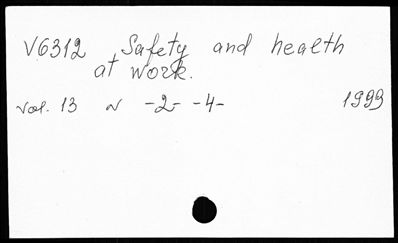 V6312 Safety and health
at work.
vol. 13 N -2- -4- 1999